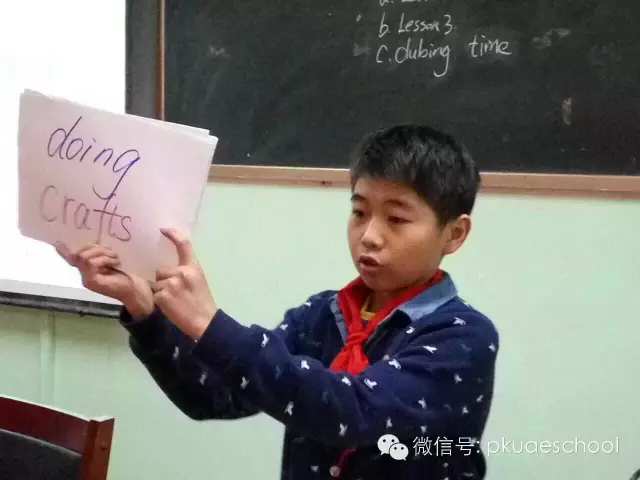 b. Lesson 3
c. dubing time
doing
crafts
微信号: pkuqeschool